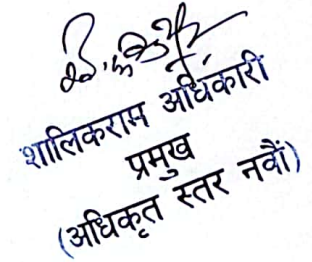 शालिकराम अधिकारी
प्रमुख
(अधिकृत स्तर नवौं)